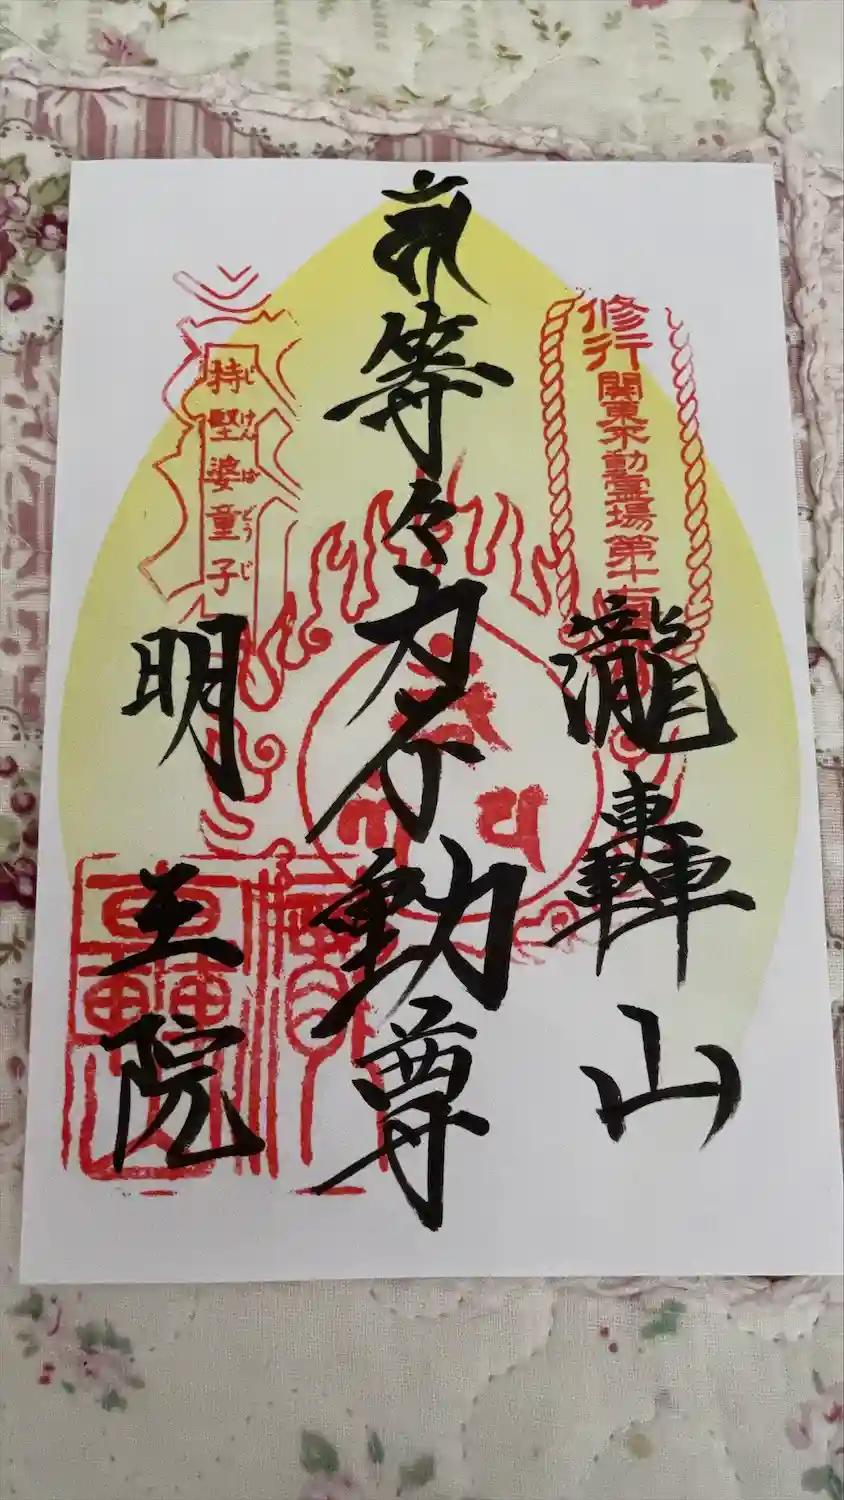 修行
関東不動霊場第十七番
瀧轟山
等々力不動尊
持堅婆童子
じけんばどうじ
明王院